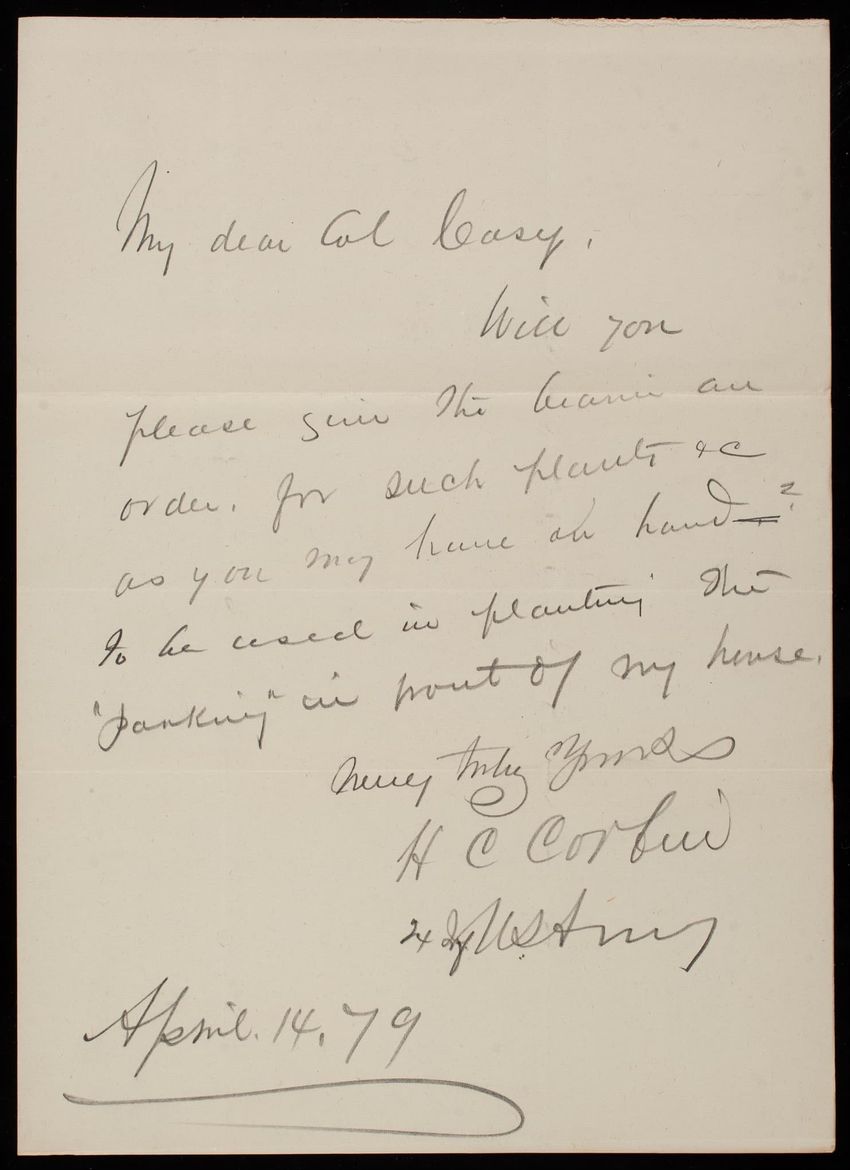 My dear Col Casey,
Will you
please give the bearer an
order. for such plants &c
as you may have on hand—?
to be used in planting the
"parking" in front of my house.
Very truly Yours
H C Corbin
U.S. Army
April. 14. 79